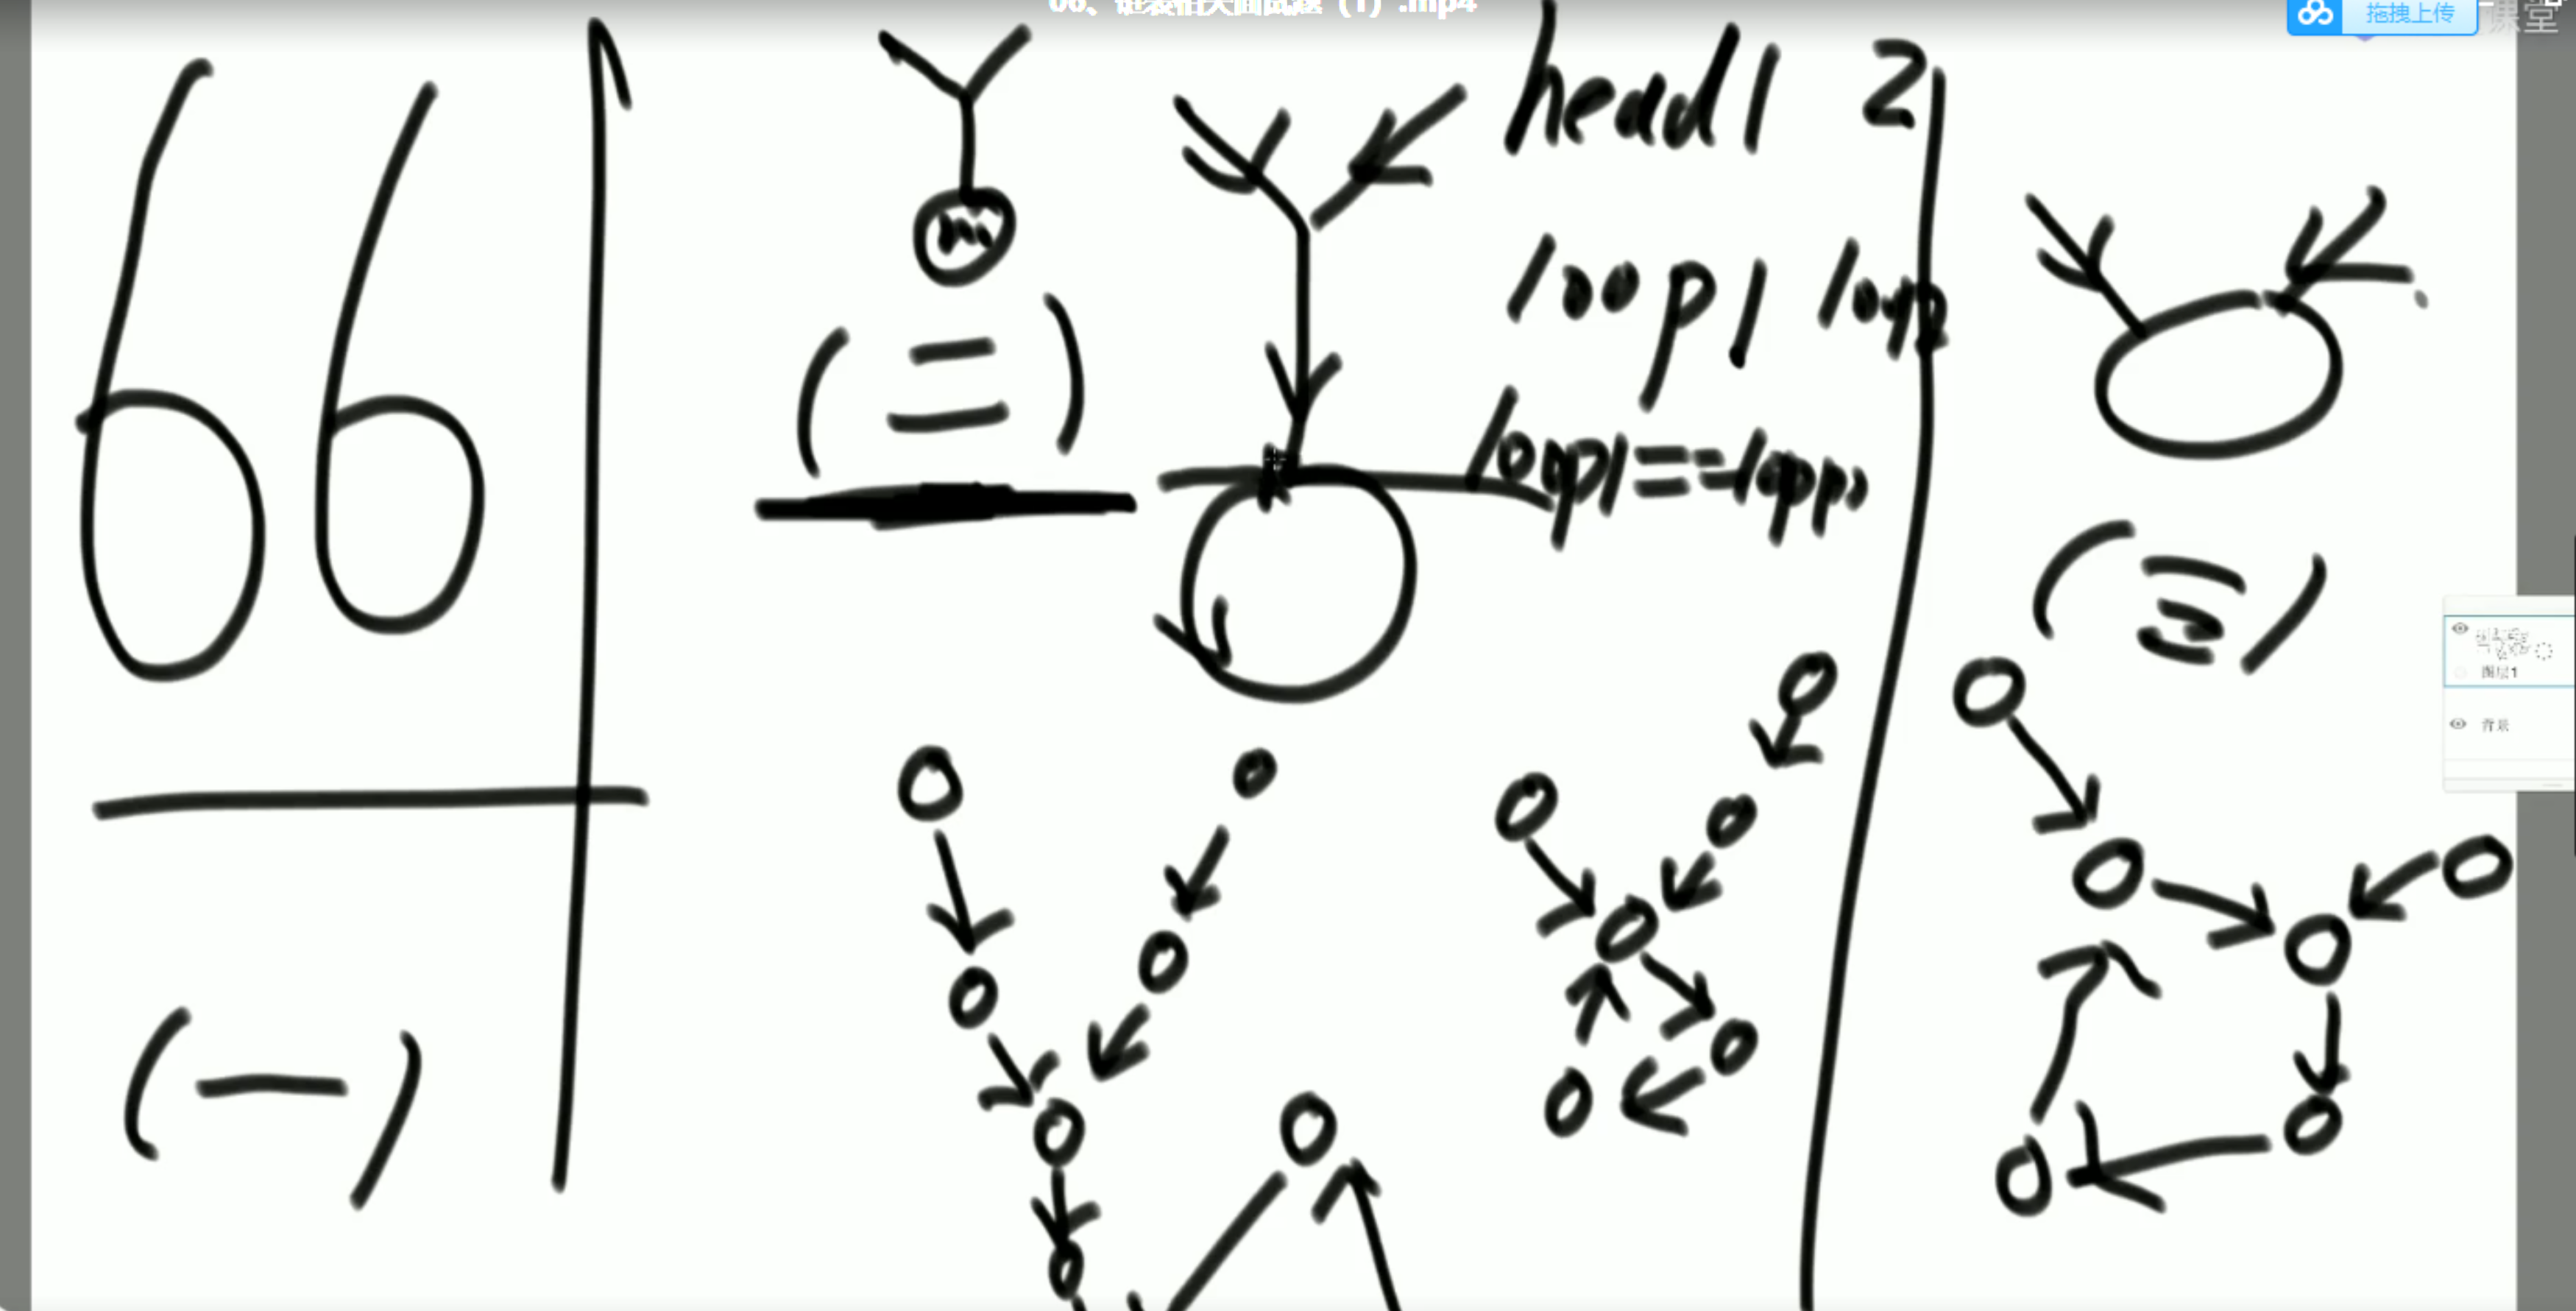 06、链表相关面试题（1）.mp4
拖拽上传
课堂
head1 2
loop1 loop
loop1==loop2
(一)
(二)
(三)
图层1
背景